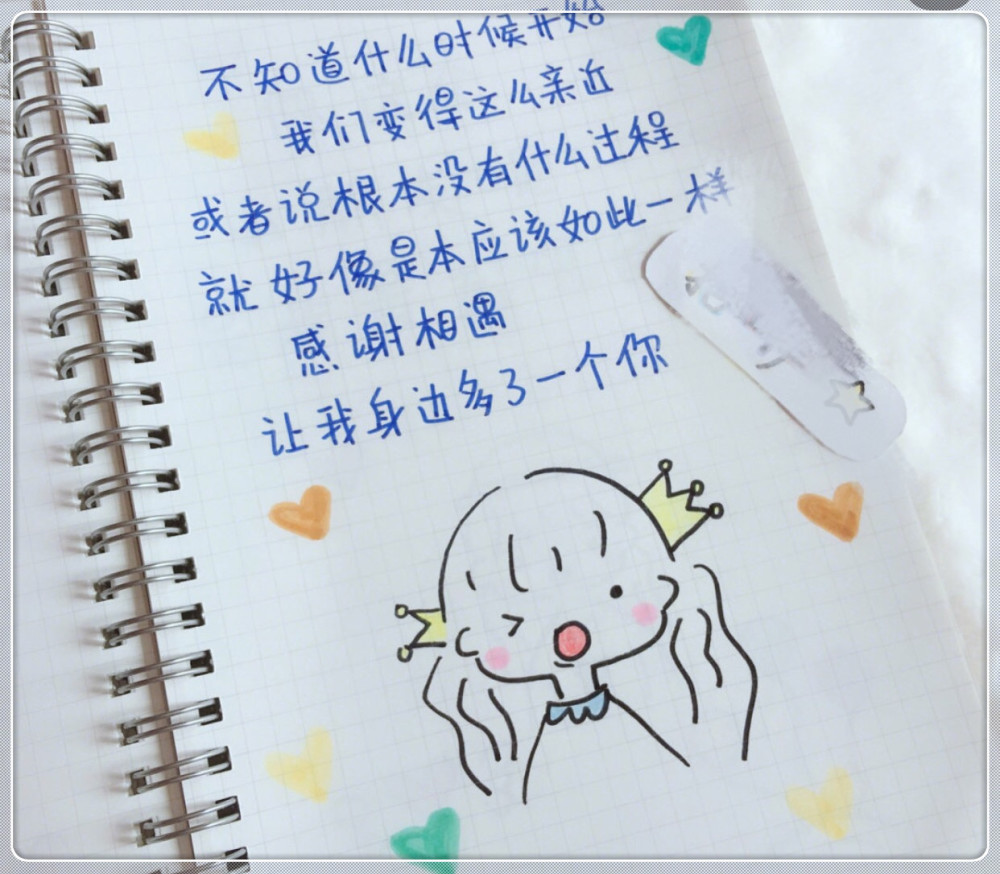 不知道什么时候开始
我们变得这么亲近
或者说根本没有什么过程
就好像是本应该如此一样
感谢相遇
让我身边多了一个你